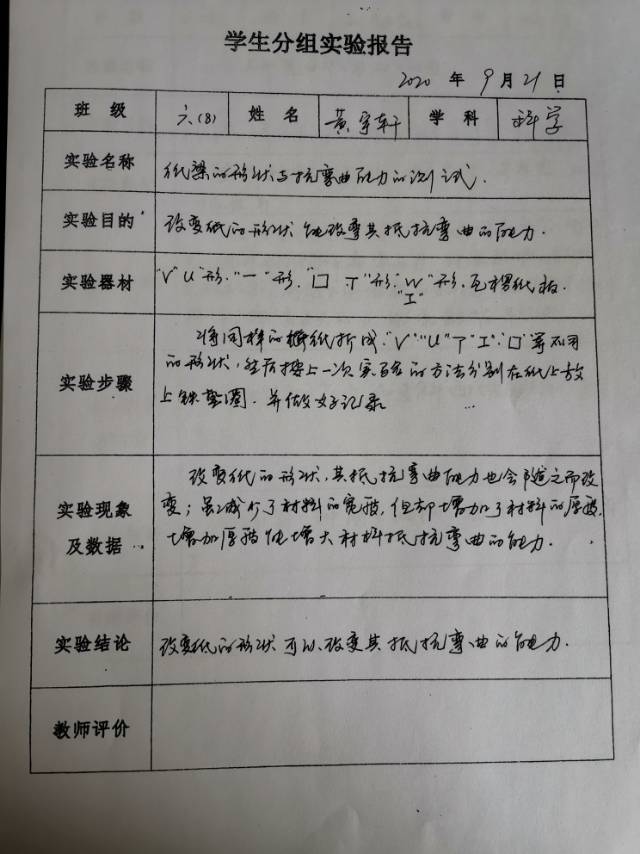 学生分组实验报告
2020 年 9 月 21 日
班 级 六(8) 姓 名 黄宇轩 学 科 科学
实验名称 纸梁的形状与抗弯曲能力的测试.
实验目的 改变纸的形状能改变其抵抗弯曲的能力.
实验器材 "V" "U"形. "一"形. "口 T"形. "W"形. 瓦楞纸板.
"工"
实验步骤 将同样的 纸折成."V" "U" "T" "工". "口"等不同
的形状, 然后按上一次实验的方法分别在纸上放
上铁垫圈. 并做好记录
实验现象及数据 改变纸的形状, 其抵抗弯曲能力也会随之而改
变; 虽减少了材料的宽度, 但却增加了材料的厚度.
增加厚度能增大材料抵抗弯曲的能力.
实验结论 改变纸的形状可以改变其抵抗弯曲的能力.
教师评价